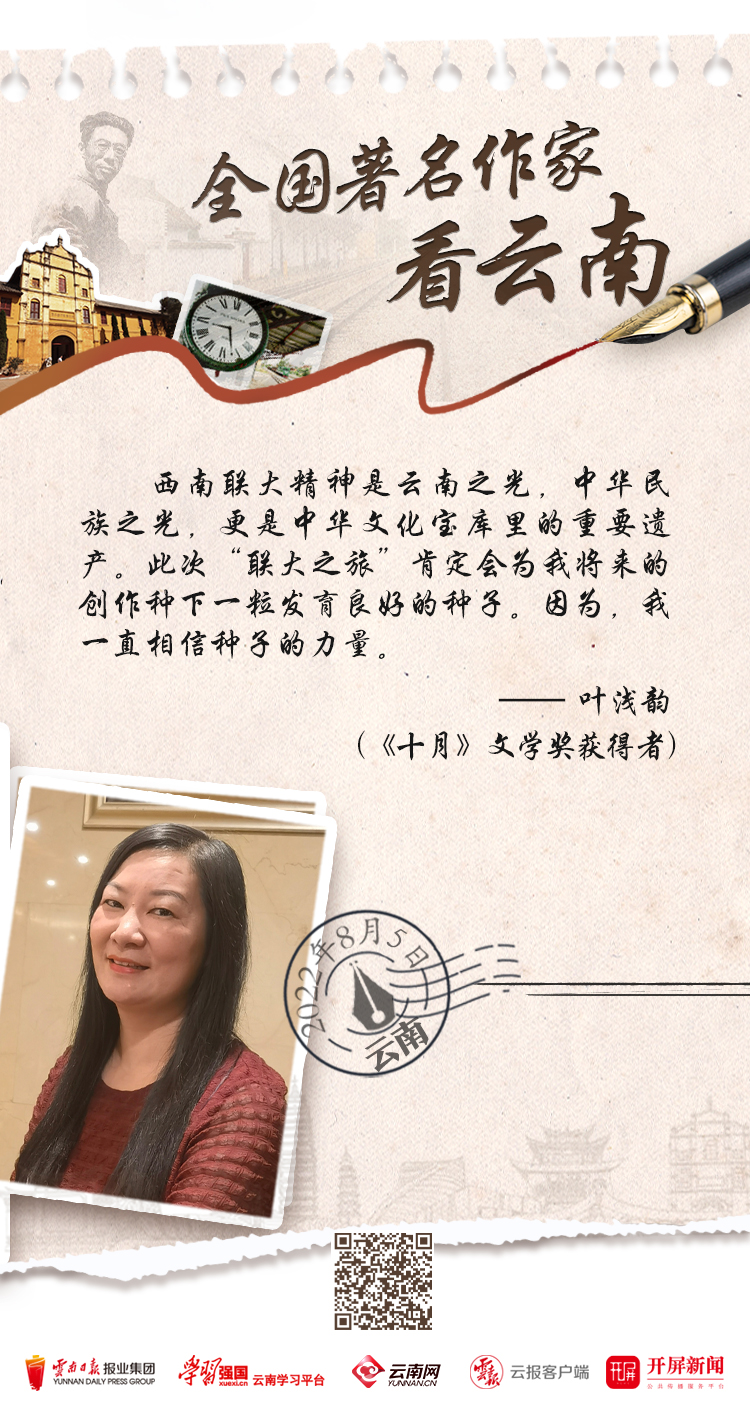 全国著名作家
看云南
西南联大精神是云南之光，中华民
族之光，更是中华文化宝库里的重要遗
产。此次“联大之旅”肯定会为我将来的
创作种下一粒发育良好的种子。因为，我
一直相信种子的力量。
—— 叶浅韵
（《十月》文学奖获得者）
2022年8月5日
云南
雲南日报 报业集团
YUNNAN DAILY PRESS GROUP
学习强国
xuexi.cn
云南学习平台
云南网
YUNNAN.CN
雲报
云报客户端
开屏
开屏新闻
公共传播服务平台